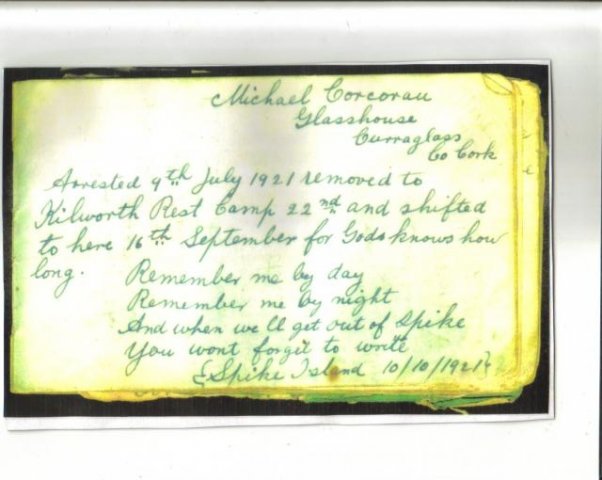 Michael Corcoran
Glasshouse
Curraglass
Co Cork
Arrested 9th July 1921 removed to
Kilworth Rest Camp 22nd and shifted
to here 16th September for Gods knows how
long.
Remember me by day
Remember me by night
And when we ll get out of Spike
You wont forget to write
{Spike Island 10/10/1921}